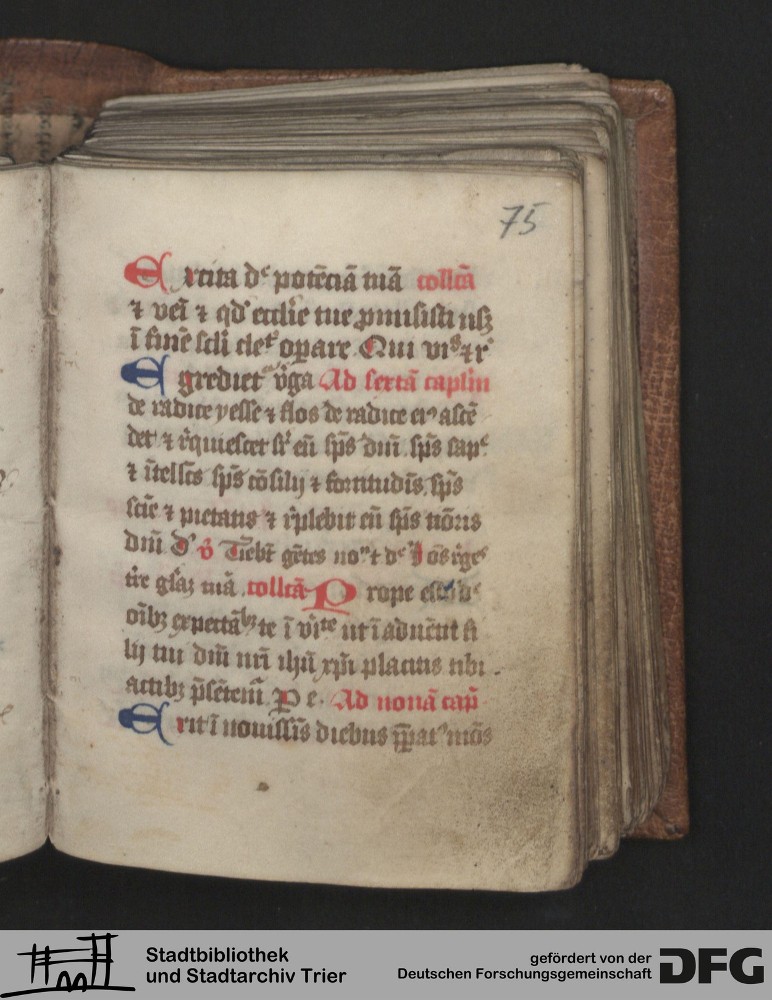 75
Excita d͛ potēciā tuā collcā
⁊ veī ⁊ qd͛ ecclie tue ꝓmisisti usqꝫ
ī finē scli clet͛ oꝑare Qui viꝰ ⁊ r͛
Egrediet͛ v͛ga Ad sextā caplm
de radice yesse ⁊ flos de radice eiꝰ ascē
det ⁊ r͛quiescet sr͛ eū sp̄s dm̄ . sp̄s sap͛
⁊ ītells̄ sp̄s cōsilij ⁊ fortitudīs . sp̄s
scīe ⁊ pietatis ⁊ r͛plebit eū sp̄s tiōris
dm̄ v̄ Tiēbt gētes d͛ oēs r͛ges
tr̄e gl̄aꝫ tuā . collcā Prope d͛
oībꝫ expectātibꝫ te ī ut ī aduētu fi
lij tui dm̄ nr̄i ihū xp̄i placitis tibi .
actibꝫ p̄sētem̄ P e . Ad nonā cap̄
Erit ī nouissīs diebus mōs
Stadtbibliothek
und Stadtarchiv Trier
gefördert von der
Deutschen Forschungsgemeinschaft
DFG